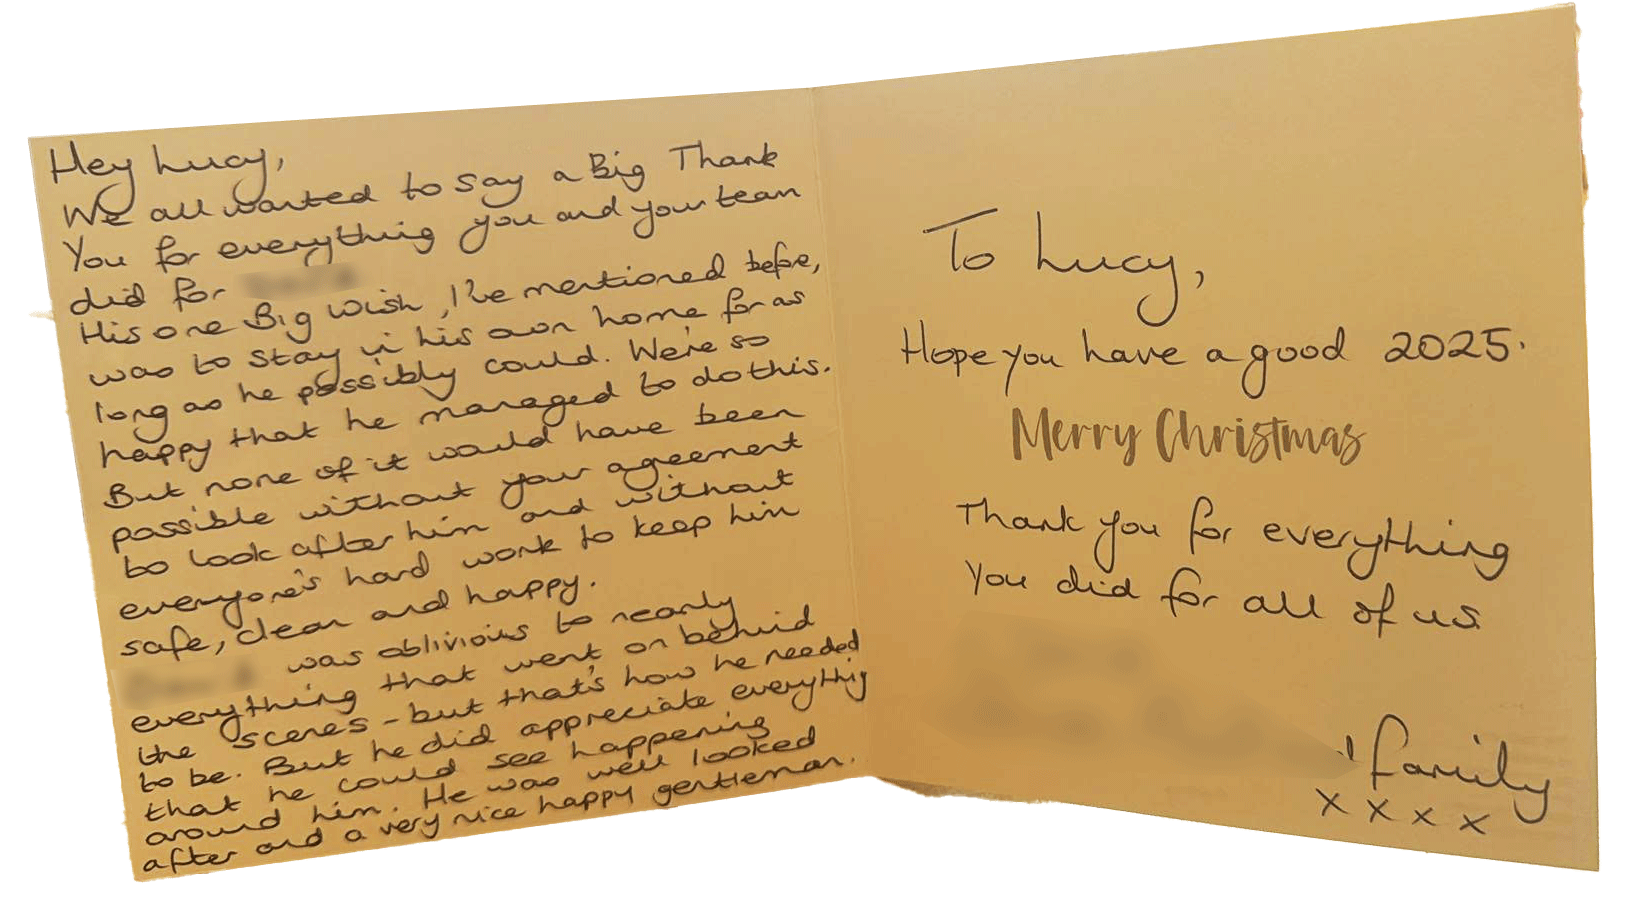 Hey Lucy,
We all wanted to say a Big Thank
You for everything you and your team
did for
His one Big wish, I've mentioned before,
was to stay in his own home for as
long as he possibly could. We're so
happy that he managed to do this.
But none of it would have been
possible without your agreement
to look after him and without
everyone's hard work to keep him
safe, clean and happy.
was oblivious to nearly
everything that went on behind
the scenes - but that's how he needed
to be. But he did appreciate everything
that he could see happening
around him. He was well looked
after and a very nice happy gentleman.
To Lucy,
Hope you have a good 2025.
Merry Christmas
Thank you for everything
You did for all of us
family
x x x x